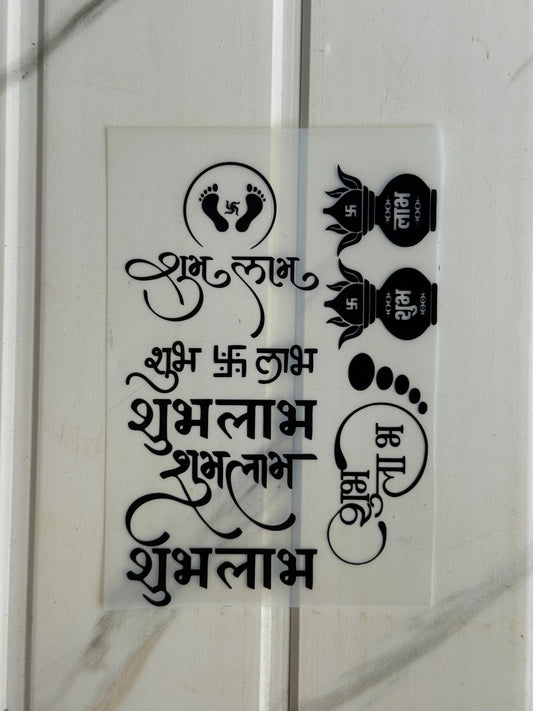 शुभ लाभ
शुभ 卐 लाभ
शुभ लाभ
शुभ लाभ
शुभ लाभ
लाभ
शुभ
शुभ
लाभ